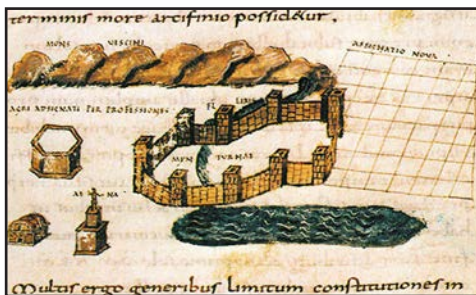 ter minis more arcifinio possidetur.
MONS VESCINI
ASSIGNATIO NOVA.
AGRI ADSIGNATI PER PROFESSIONES
FL LIRIS
MEN TURNAE
AE NA
Multis ergo generibus limitum constitutiones in